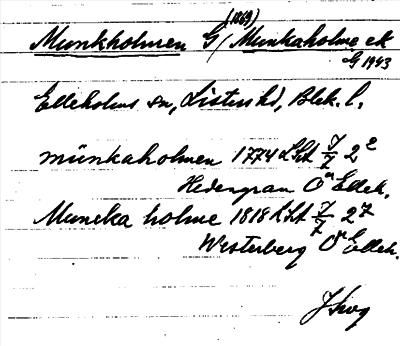 (1869)
Munkholmen G / Munkaholme ek
G 1943
Elleholms sn, Listers hd, Blek. l.
münkaholmen 1774 LSA J/7 2²
Hedengran Oᵐ Ellek.
Muncka holme 1818 LSA J/7 2⁷
Westerberg Oᵐ Ellek.